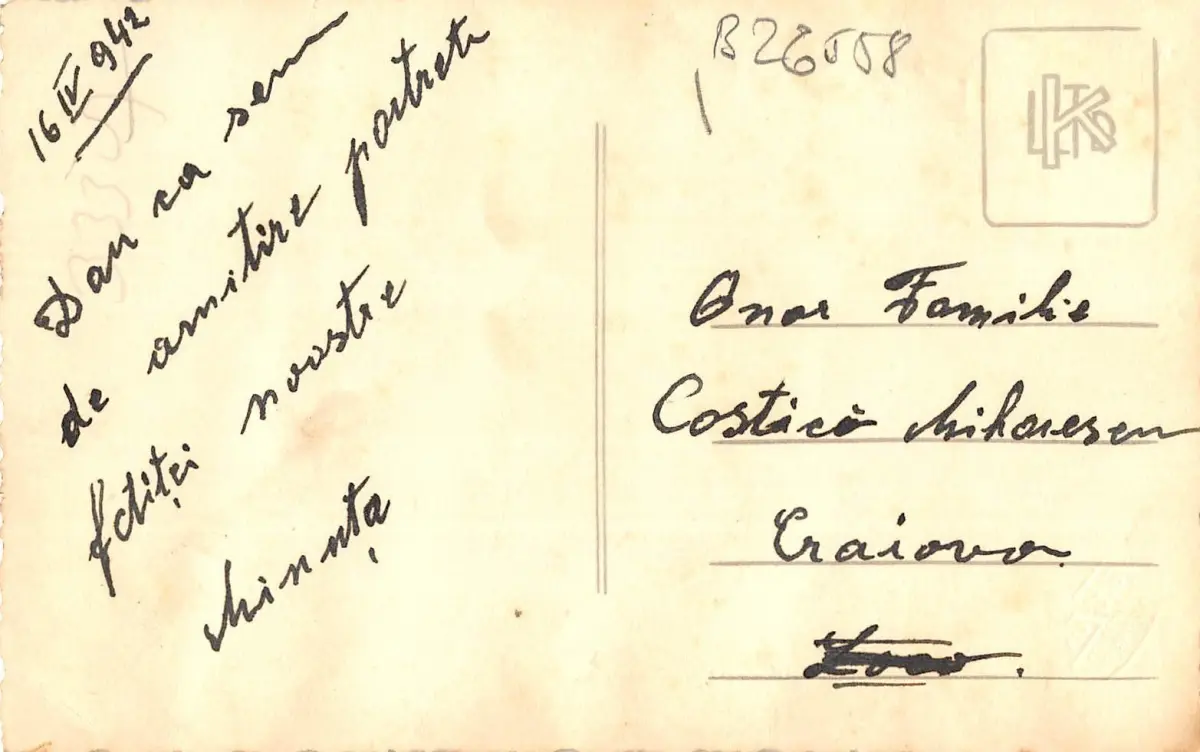 16 IV 942
Dau ca semn
de amintire portretu
fetiței noastre
Minuța
B26558
Onor Familie
Costică Mihăiescu
Craiova
Loco.